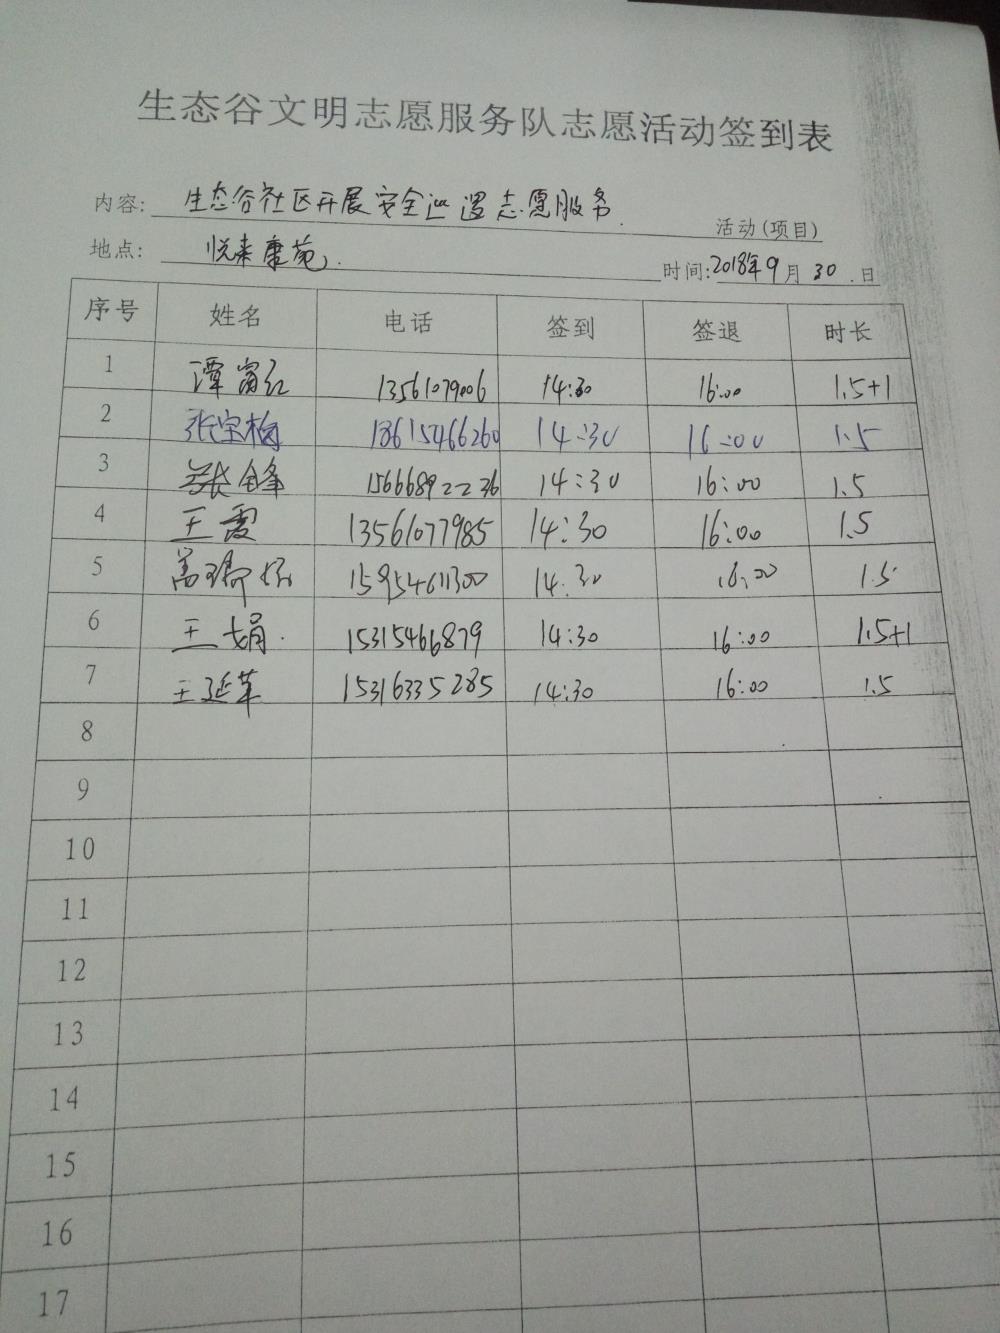 生态谷文明志愿服务队志愿活动签到表
内容: 生态谷社区开展安全巡逻志愿服务. 活动(项目)
地点: 悦来康苑. 时间:2018年9月30.日
序号 姓名 电话 签到 签退 时长
1 谭富红 13561079006 14:30 16:00 1.5+1
2 张宝梅 18615466260 14:30 16:00 1.5
3 张锋 15666892236 14:30 16:00 1.5
4 王霞 13561077985 14:30 16:00 1.5
5 15954611300 14:30 16:00 1.5
6 王娟. 15315466879 14:30 16:00 1.5+1
7 王延革 15316335285 14:30 16:00 1.5
8
9
10
11
12
13
14
15
16
17